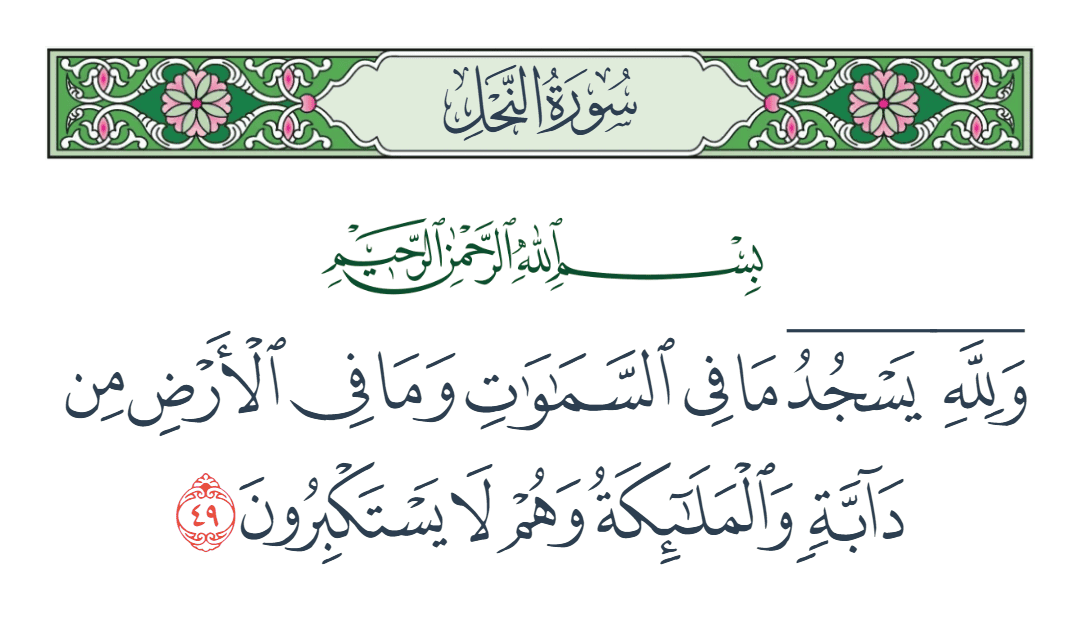 سُورَةُ النَّحۡلِ
بِسۡمِ ٱللَّهِ ٱلرَّحۡمَٰنِ ٱلرَّحِيمِ
وَلِلَّهِ يَسۡجُدُ مَا فِي ٱلسَّمَٰوَٰتِ وَمَا فِي ٱلۡأَرۡضِ مِن
دَآبَّةٖ وَٱلۡمَلَٰٓئِكَةُ وَهُمۡ لَا يَسۡتَكۡبِرُونَ ٤٩